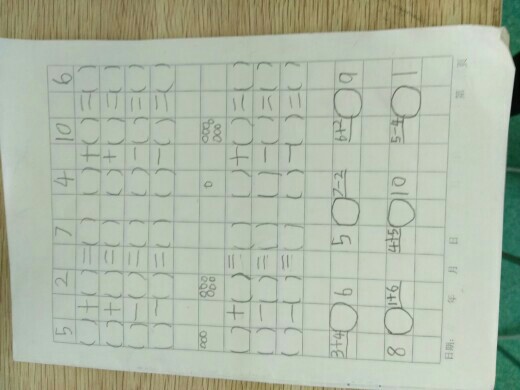 5 2 7 4 10 6
( )+( )=( ) ( )+( )=( )
( )+( )=( ) ( )+( )=( )
( )-( )=( ) ( )-( )=( )
( )-( )=( ) ( )-( )=( )
( )+( )=( ) ( )+( )=( )
( )-( )=( ) ( )-( )=( )
( )-( )=( ) ( )-( )=( )
3+4○6 5○7-2 6+2○9
8○1+6 4+5○10 5-4○1
日期: 年 月 日 第 页